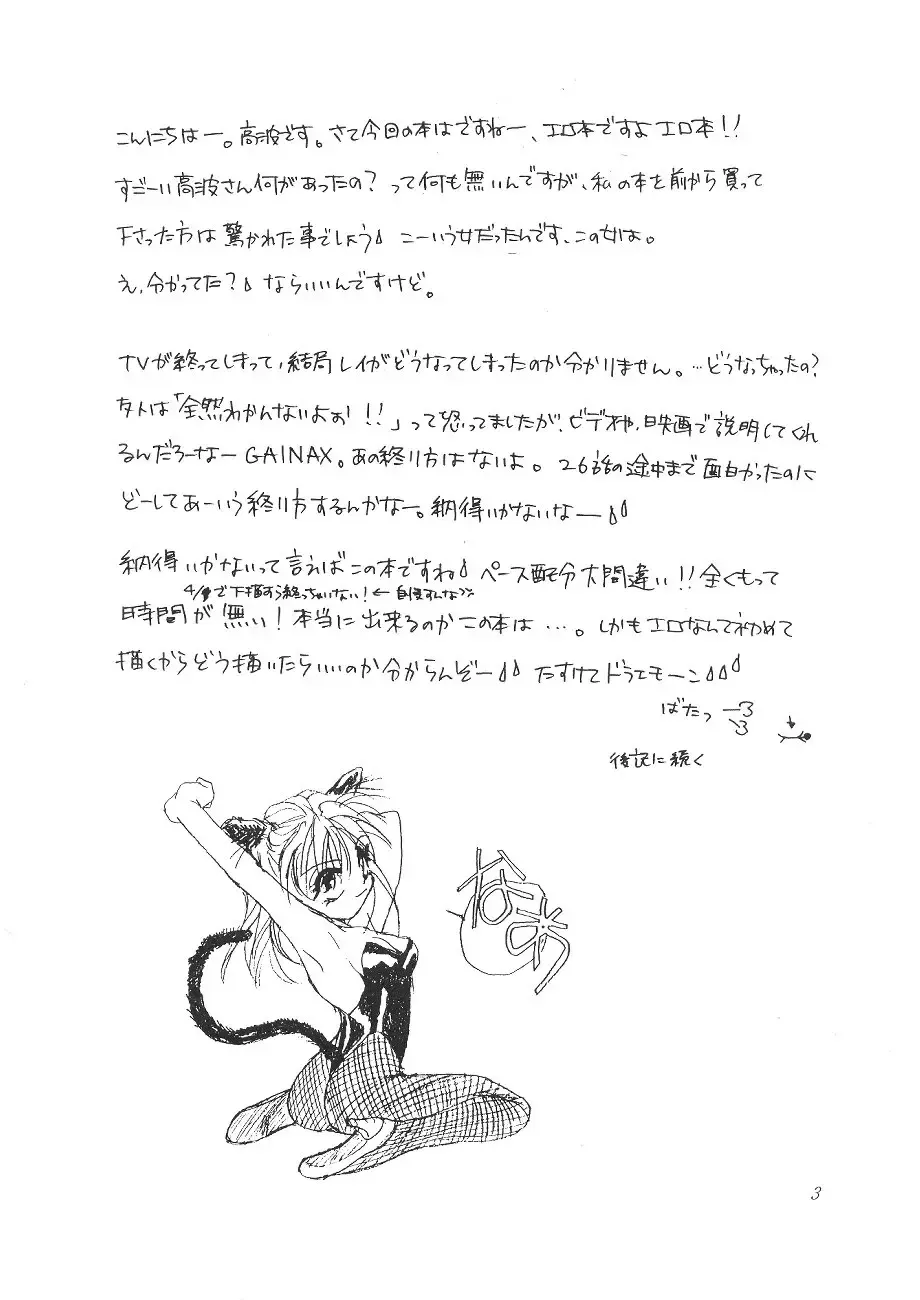 こんにちはー。高波です。さて今回の本はですねー、エロ本ですよエロ本!!
すごーい高波さん何があったの? って何も無いんですが、私の本を前から買って
下さった方は驚かれた事でしょう こーいう女だったんです、この女は。
え、分かってた? ならいいんですけど。
TVが終ってしまって、結局レイがどうなってしまったのか分かりません。…どうなっちゃったの?
友人は「全然わかんないよぉ!!」って怒ってましたが、ビデオや、映画で説明してくれ
るんだろーなー GAINAX。あの終り方はないよ。26話の途中まで面白かったのに
どーしてあーいう終り方するんかなー。納得いかないなー
納得いかないって言えばこの本ですね ペース配分大間違い!!全くもって
4/ で下描すら終っちゃいない!←自慢すんなよ
時間が無い!本当に出来るのかこの本は…。しかもエロなんて初めて
描くからどう描いたらいいのか分からんぞー たすけてドラエモーン
ばたっ
後記に続く
なあ
3